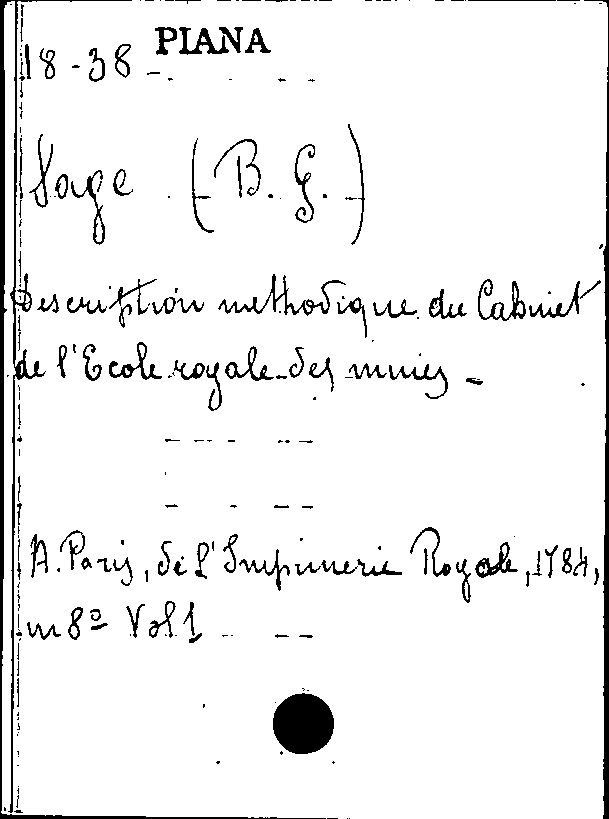 PIANA
18-38
Sage (B. G.)
Description méthodique du Cabinet
de l'Ecole royale des mines -
A. Paris, de l'Imprimerie Royale, 1784,
in 8º Vol 1